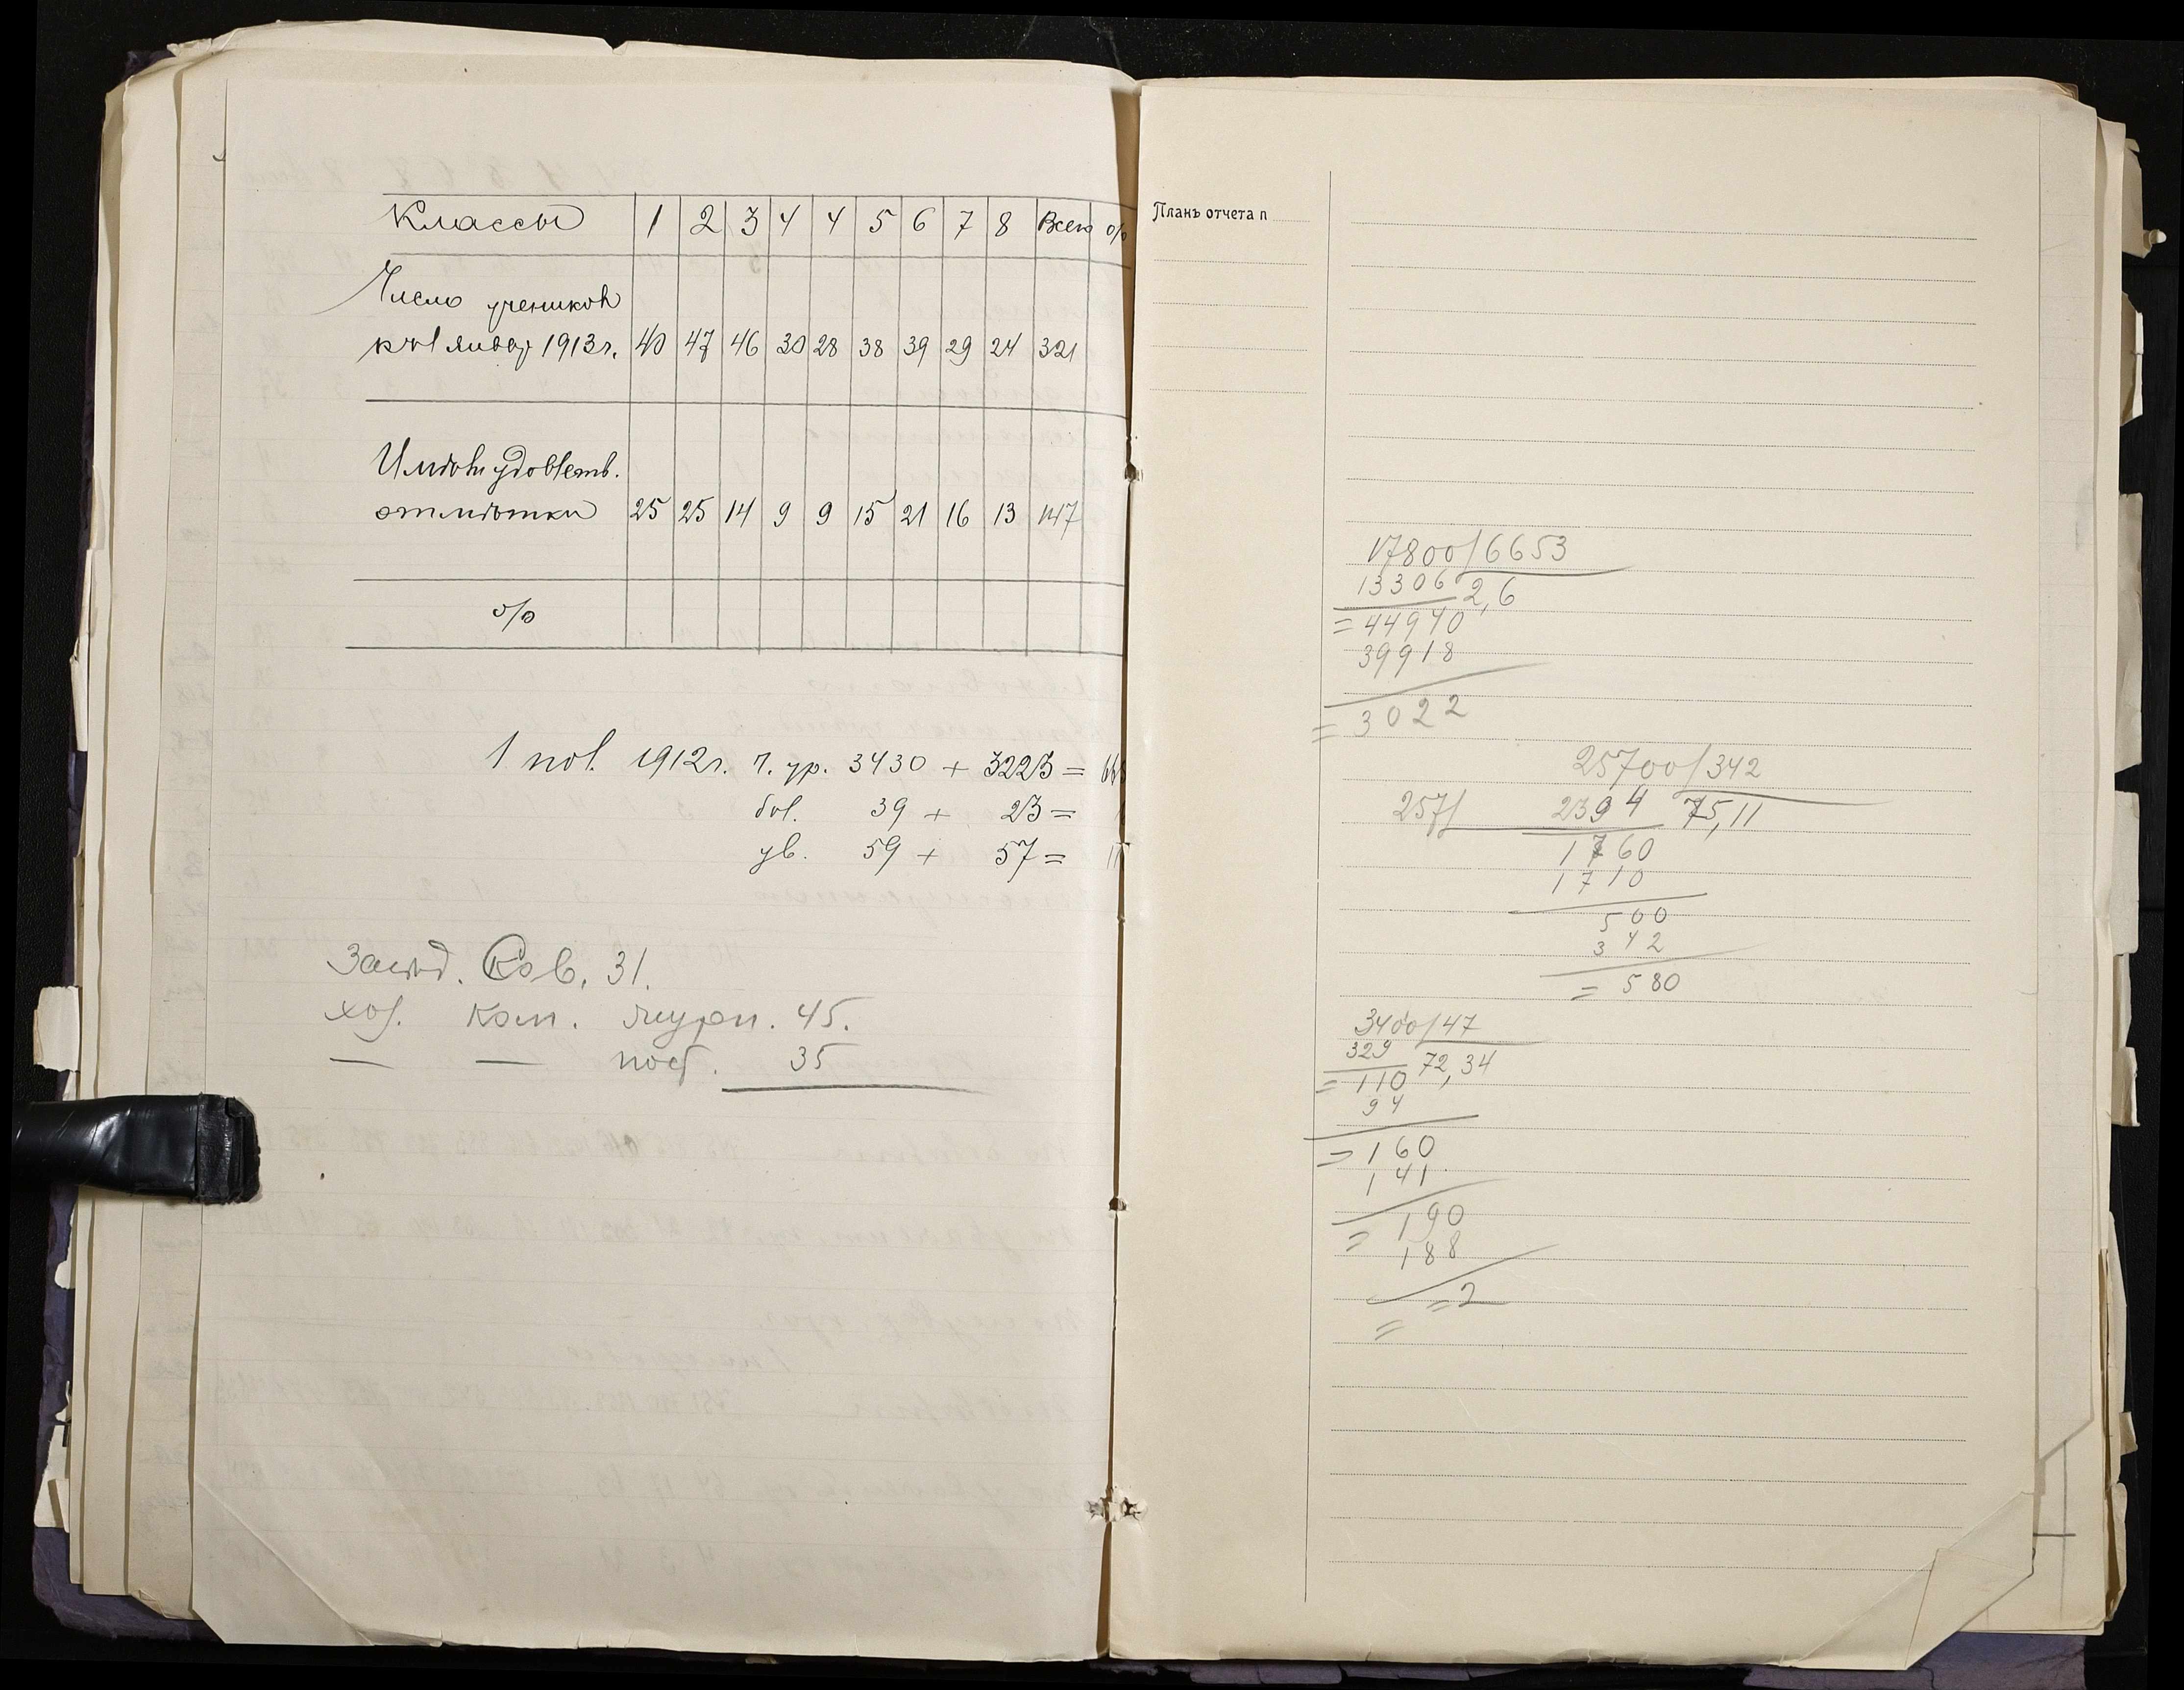 Классы 1 2 3 4 4 5 6 7 8 Всего %
Число учеников
къ 1 январ 1913 г. 40 47 46 30 28 38 39 29 24 321
Имѣли удовлетв.
отмѣтки 25 25 14 9 9 15 21 16 13 147
%
1 пол. 1912 г. ч. ур. 3430 + 3223 =
бол. 39 + 23 =
ув. 59 + 57 =
Засѣд. Сов. 31.
хоз. Ком. журн. 45.
— — пост. 35
Планъ отчета п
17800 6653
13306 2,6
= 44940
39918
= 3022
25700 342
257 2394 75,11
1760
1710
500
342
= 580
3400 47
329 72,34
= 110
94
= 160
141
= 190
188
= 2
=